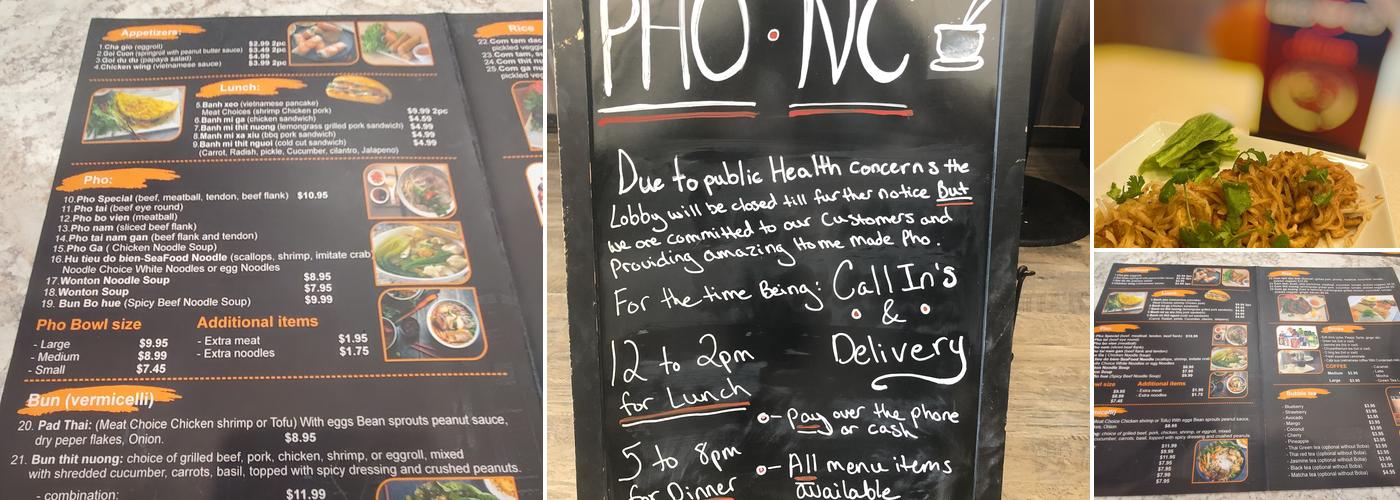 Appetizers:
1.Cha gio (eggroll) $2.99 2pc
2.Goi Cuon (springroll with peanut butter sauce) $3.49 2pc
3.Goi du du (papaya salad) $4.99
4.Chicken wing (vietnamese sauce) $3.99 2pc
Lunch:
5.Banh xeo (vietnamese pancake)
Meat Choices (shrimp Chicken pork) $9.99 2pc
6.Banh mi ga (chicken sandwich) $4.59
7.Banh mi thit nuong (lemongrass grilled pork sandwich) $4.99
8.Manh mi xa xiu (bbq pork sandwich) $4.99
9.Banh mi thit nguoi (cold cut sandwich) $4.99
(Carrot, Radish, pickle, Cucumber, cilantro, Jalapeno)
Pho:
10.Pho Special (beef, meatball, tendon, beef flank) $10.95
11.Pho tai (beef eye round)
12.Pho bo vien (meatball)
13.Pho nam (sliced beef flank)
14.Pho tai nam gan (beef flank and tendon)
15.Pho Ga ( Chicken Noodle Soup)
16.Hu tieu do bien-SeaFood Noodle (scallops, shrimp, imitate crab
Noodle Choice White Noodles or egg Noodles
17.Wonton Noodle Soup $8.95
18.Wonton Soup $7.95
19. Bun Bo hue (Spicy Beef Noodle Soup) $9.99
Pho Bowl size
- Large $9.95
- Medium $8.99
- Small $7.45
Additional items
- Extra meat $1.95
- Extra noodles $1.75
Bun (vermicelli)
20. Pad Thai: (Meat Choice Chicken shrimp or Tofu) With eggs Bean sprouts peanut sauce,
dry peper flakes, Onion. $8.95
21. Bun thit nuong: choice of grilled beef, pork, chicken, shrimp, or eggroll, mixed
with shredded cucumber, carrots, basil, topped with spicy dressing and crushed peanuts.
- combination: $11.99
Rice
22.Com tam dac
pickled veggi
23.Com tam, su
24.Com tam
25.Com ga nu
pickled veg
PHO · NC
Due to public Health concerns the
Lobby will be closed till further notice But
we are committed to our Customers and
Providing amazing Home made Pho.
For the time Being: Call In's
&
Delivery
12 to 2pm
for Lunch
5 to 8pm
for Dinner
- Pay over the phone
or cash
- All menu items
available
Additional items
- Extra meat $1.95
- Extra noodles $1.75
COFFEE
Medium $2.95
Large $3.95
Bubble tea
- Blueberry $3.95
- Strawberry $3.95
- Avocado $3.95
- Mango $3.95
- Coconut $3.95
- Cherry $3.95
- Pineapple $3.95
- Thai Green tea (optional without Boba)
- Thai red tea (optional without Boba)
- Jasmine tea (optional without Boba)
- Black tea (optional without Boba)
- Matcha tea (optional without Boba)